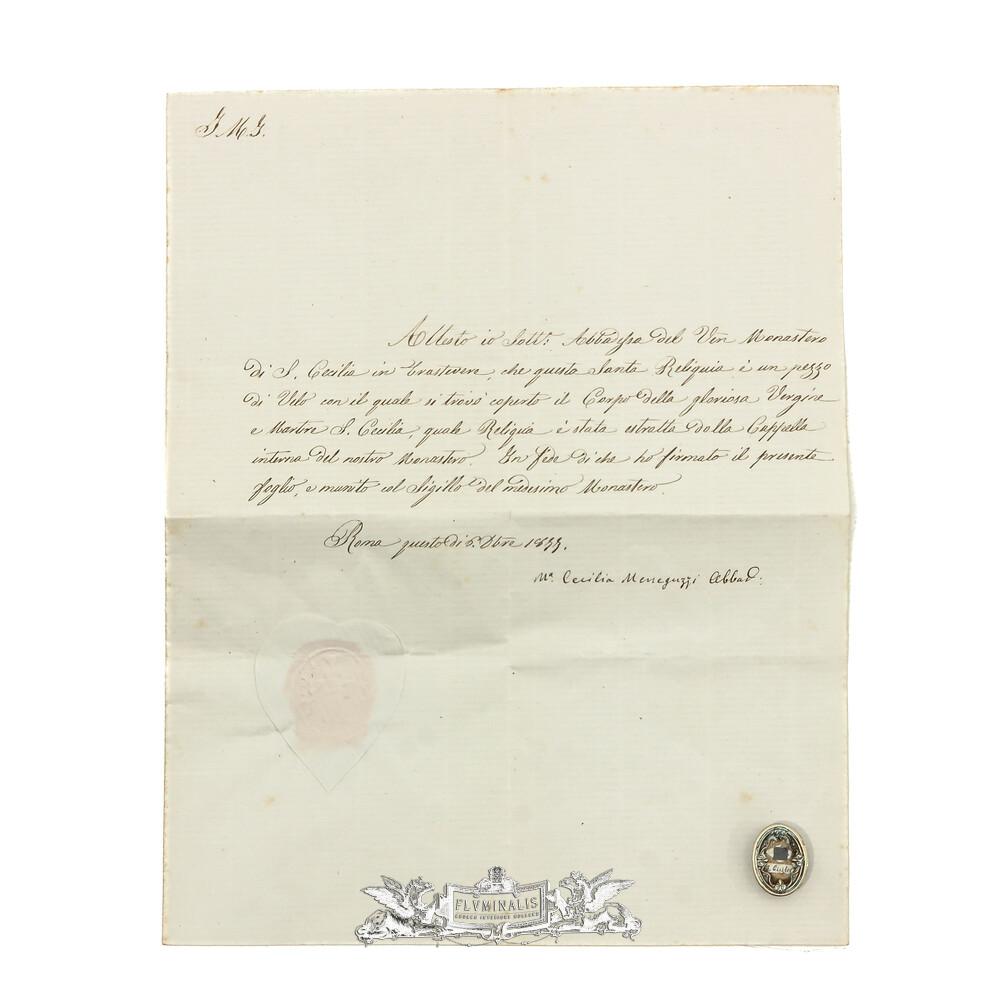 J. M. J.
Attesto io Sott.ᵃ Abbadessa del Ven Monastero
di S. Cecilia in Trastevere, che questa Santa Reliquia è un pezzo
di Velo con il quale si trovò coperto il Corpo della gloriosa Vergine
e Martire S. Cecilia, quale Reliquia è stata estratta dalla Cappella
interna del nostro Monastero. In fede di che ho firmato il presente
foglio, e munito col Sigillo del medesimo Monastero.
Roma questo di 6. Dbre
Mᵃ Cecilia Meneguzzi Abbad:
FLVMINALIS